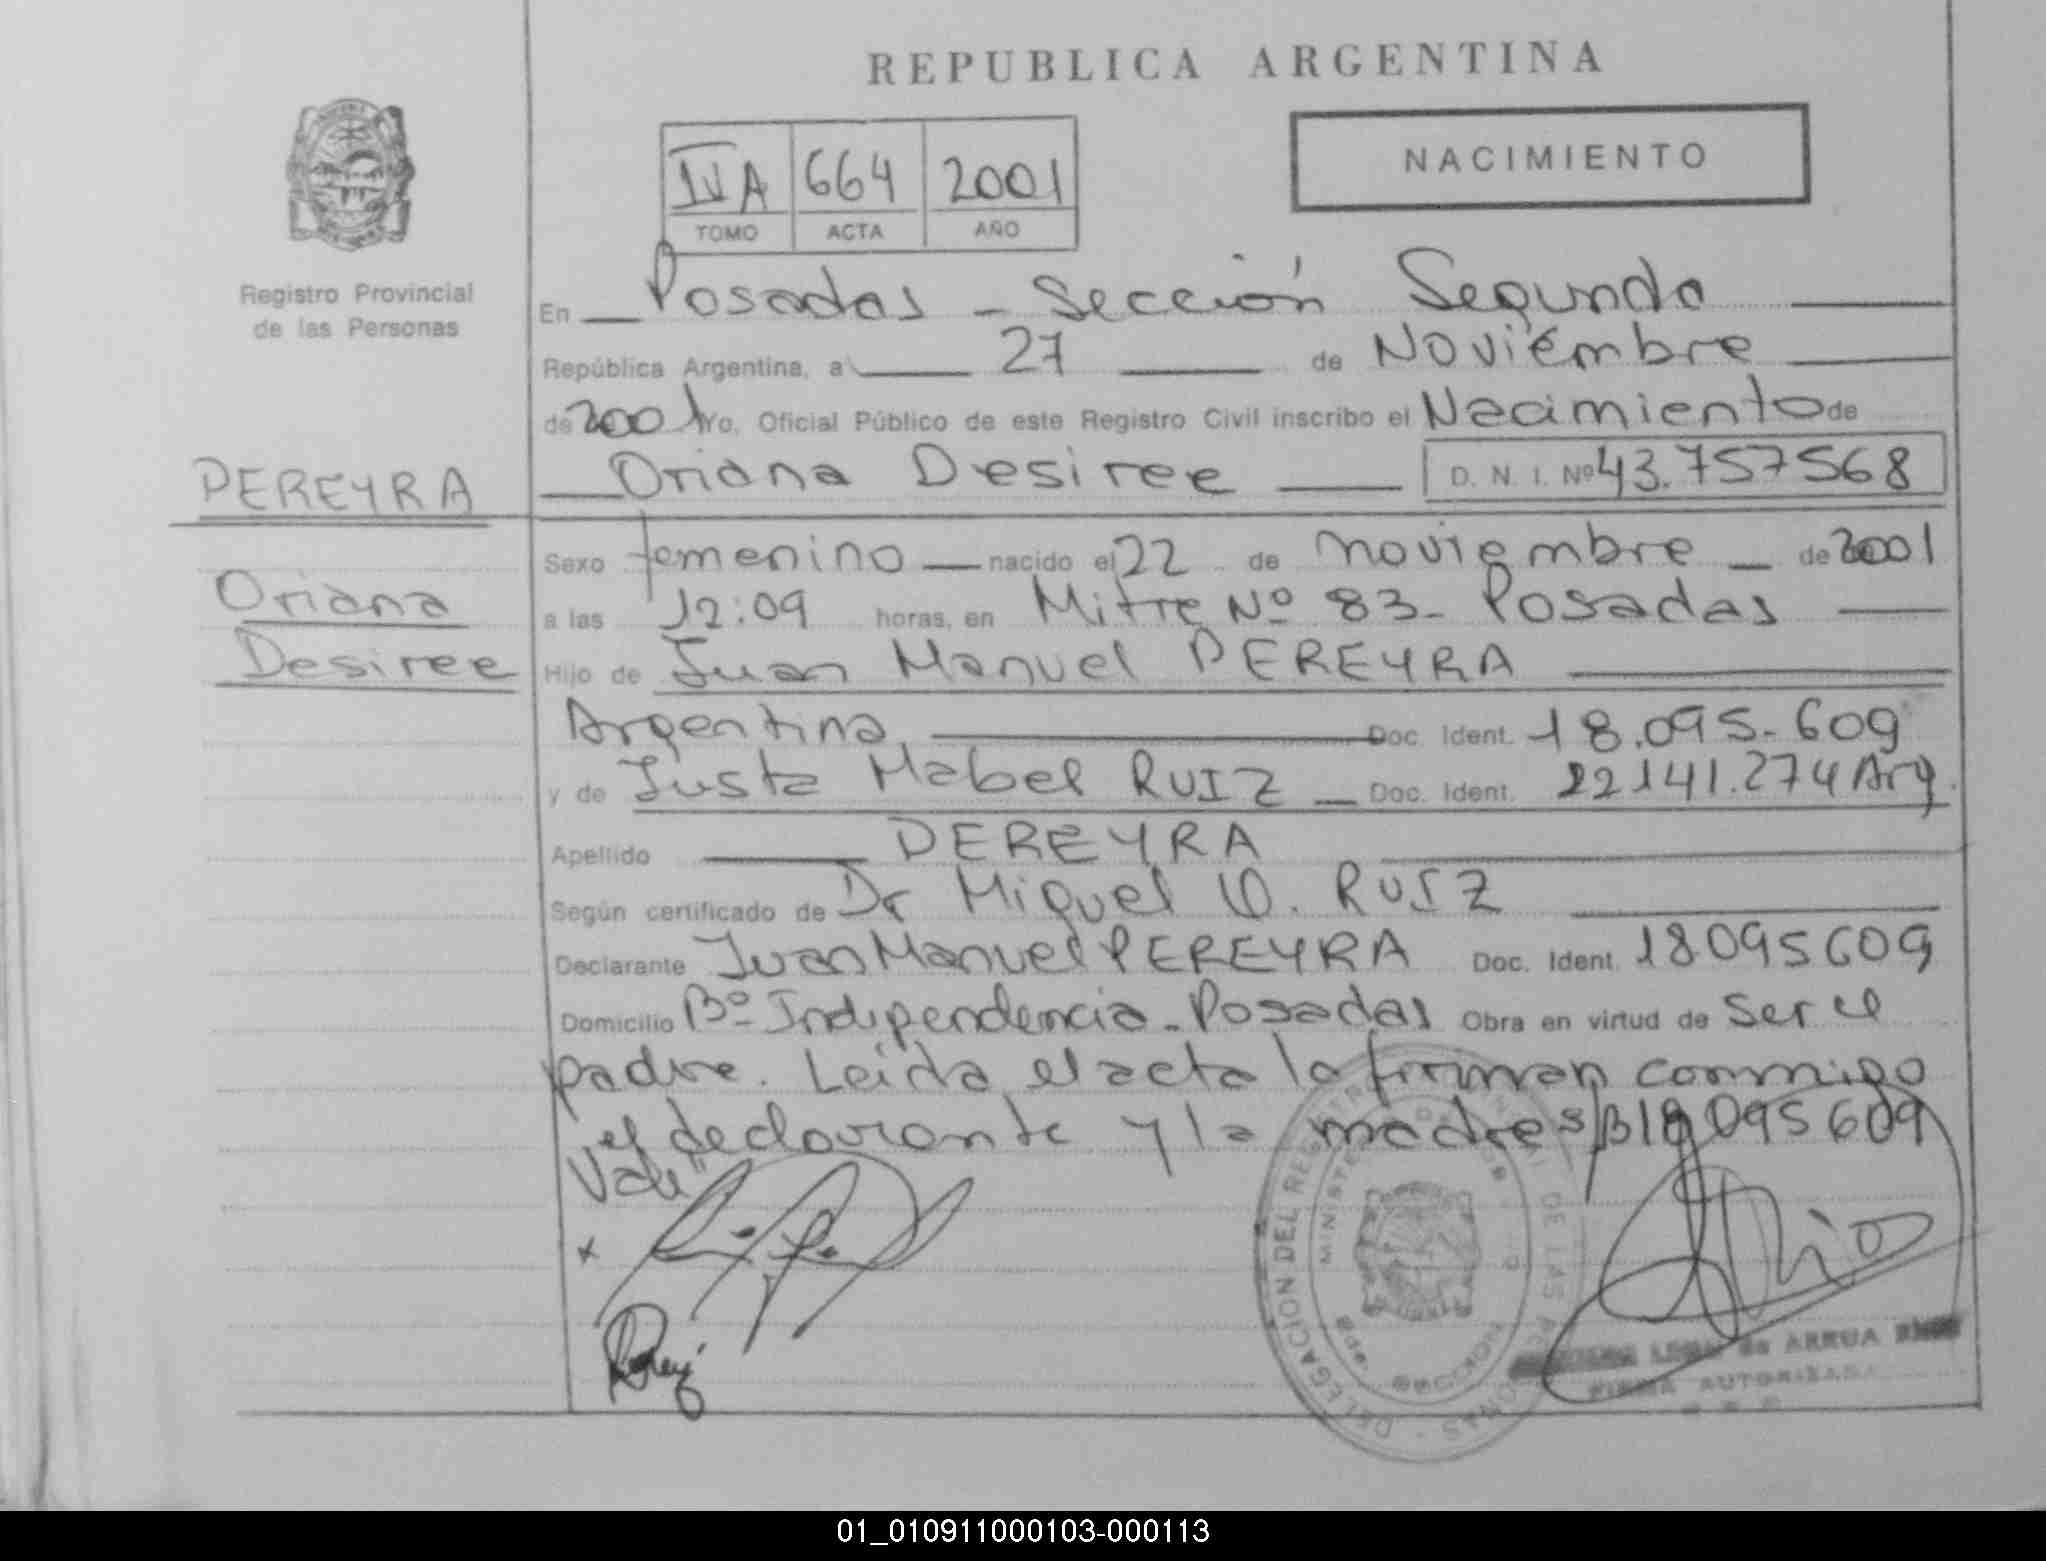 REPUBLICA ARGENTINA
NACIMIENTO
IVA 664 2001
TOMO ACTA AÑO
Registro Provincial
de las Personas
En Posadas - Sección Segunda
República Argentina, a 27 de Noviembre
de 2001 Yo, Oficial Público de este Registro Civil inscribo el Nacimiento de
PEREYRA
Oriana Desiree D. N. I. Nº 43.757568
Sexo femenino nacido el 22 de noviembre de 2001
Oriana
a las 12:09 horas, en Mitre Nº 83- Posadas
Desiree
Hijo de Juan Manuel PEREYRA
Argentina Doc. Ident. 18.095.609
y de Justa Mabel RUIZ Doc. Ident. 22141.274 Arg.
Apellido PEREYRA
Según certificado de Dr Miguel O. RUIZ
Declarante Juan Manuel PEREYRA Doc. Ident. 18095609
Domicilio Bº Independencia - Posadas Obra en virtud de ser el
padre. Leida el acta la firman conmigo
el declarante y la madre s/B 18 095 609
Vale
DELEGACION DEL REGISTRO PROVINCIAL DE LAS PERSONAS
ARRUA
FIRMA AUTORIZADA
01_010911000103-000113